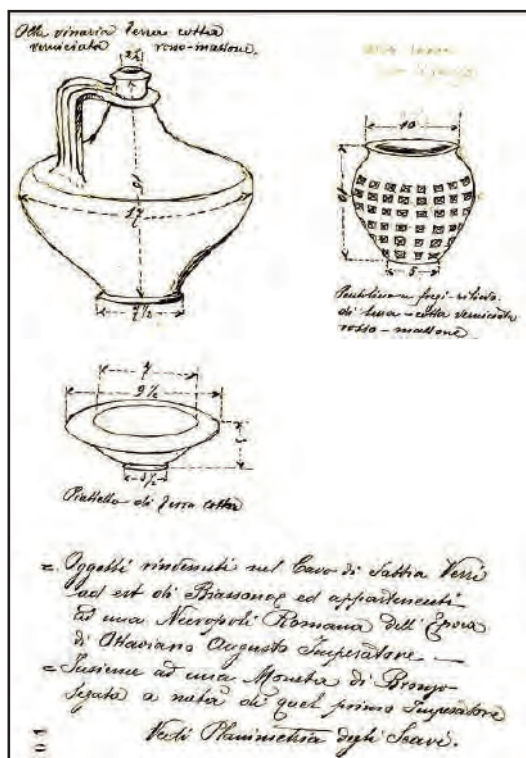 Olla vinaria Terra cotta
verniciata rosso-mattone.
17
7 1/2
10
5
Pentolino a fregi-rilievo
di terra-cotta verniciata
rosso-mattone
7
9 1/2
3 1/2
Piattello di Terra cotta
= Oggetti rinvenuti nel Cavo di Sabbia Verri
ad est di Biassono, ed appartenenti
ad una Necropoli Romana dell'Epoca
di Ottaviano Augusto Imperatore —
= Insieme ad una Moneta di Bronzo
segata a metà di quel primo Imperatore
Vedi Planimetria degli Scavi.